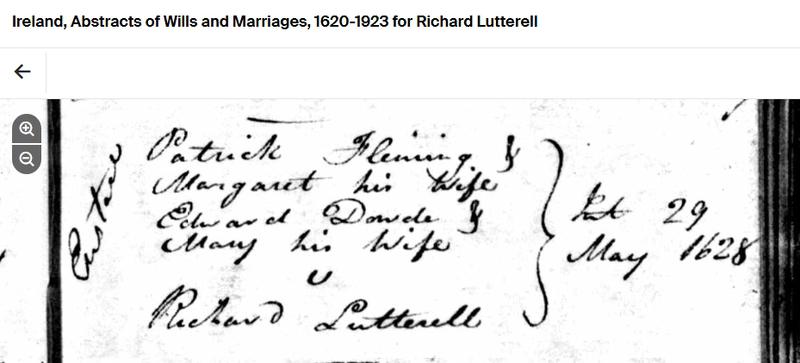 Ireland, Abstracts of Wills and Marriages, 1620-1923 for Richard Lutterell
Patrick Fleming &
Margaret his Wife
Edward Dowde &
Mary his Wife
v
Richard Lutterell
29
May 1628